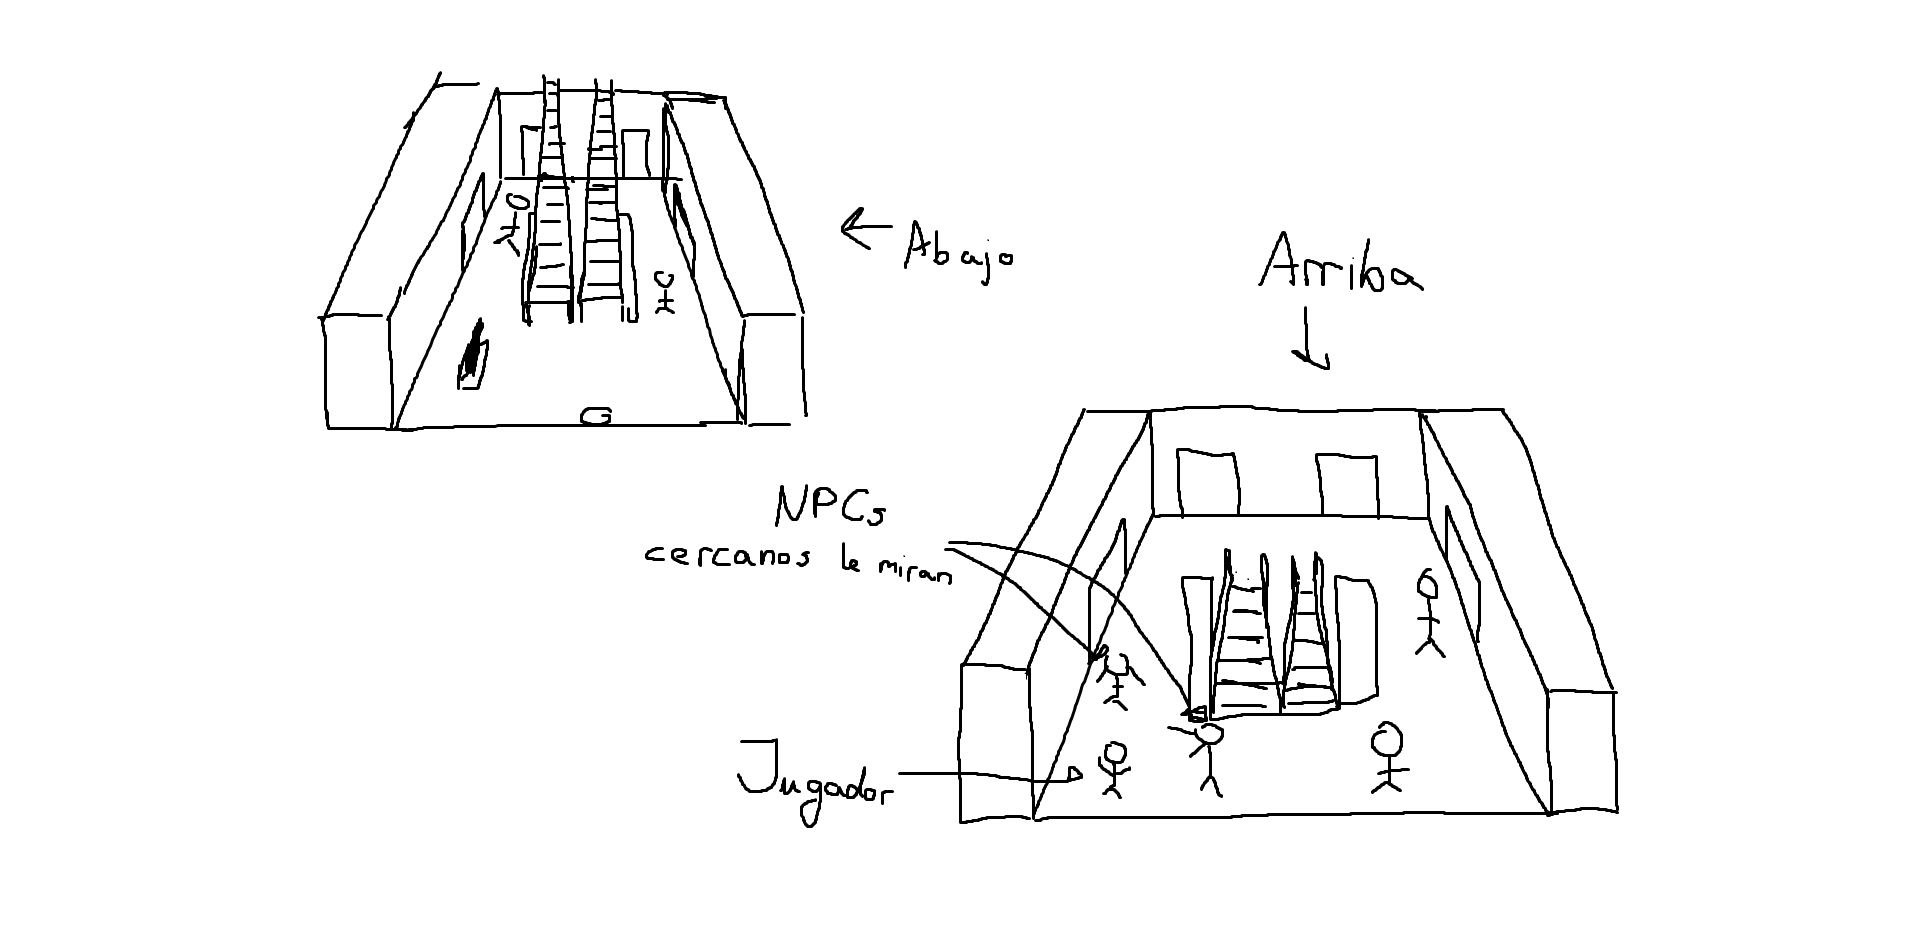 Abajo
Arriba
NPCs
cercanos le miran
Jugador